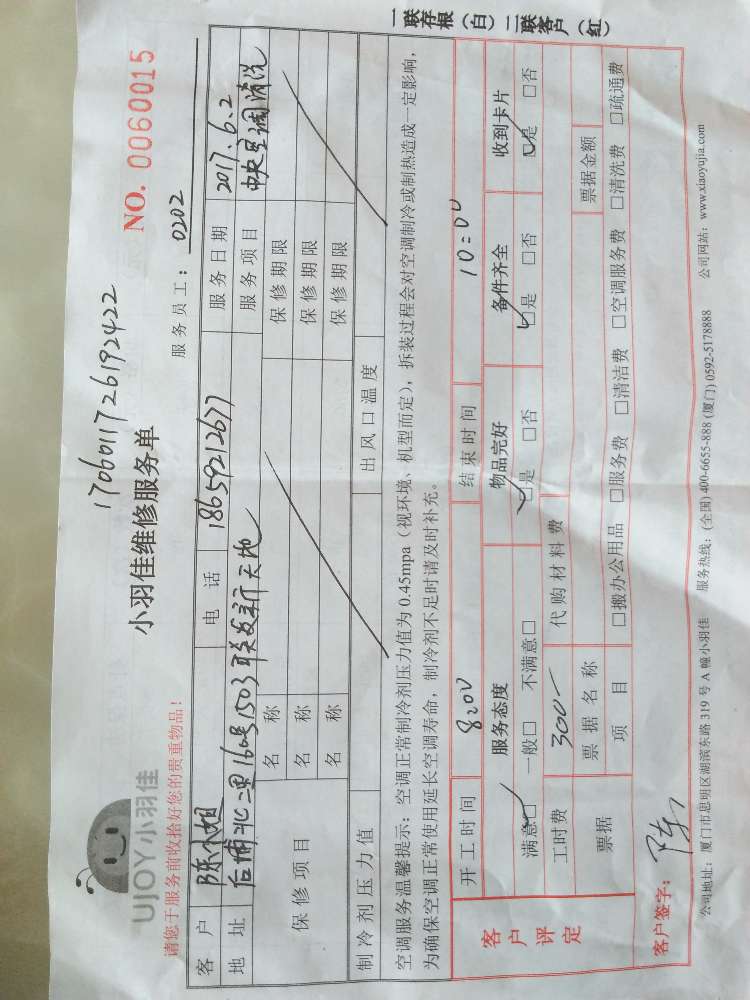 1706011726192422
UJOY小羽佳
小羽佳维修服务单
NO. 0060015
请您于服务前收拾好您的贵重物品!
服务员工: 0202
客户 陈小姐 电话 18659212677 服务日期 2017.6.2
地址 后埔北二里160号1503联发新天地 服务项目 中央空调清洗
保修项目 名称 保修期限
名称 保修期限
名称 保修期限
制冷剂压力值 出风口温度
空调服务温馨提示:空调正常制冷剂压力值为 0.45mpa(视环境、机型而定),拆装过程会对空调制冷或制热造成一定影响,
为确保空调正常使用延长空调寿命,制冷剂不足时请及时补充。
客户评定
开工时间 8:00 结束时间 10:00
服务态度 物品完好 备件齐全 收到卡片
满意□ 一般□ 不满意□ □是 □否 □是 □否 □是 □否
工时费 300 代购材料费
票据 票据名称 票据金额
项目 □搬办公用品 □服务费 □清洁费 □空调服务费 □清洗费 □疏通费
客户签字: 陈
公司地址:厦门市思明区湖滨东路 319 号 A 幢小羽佳 服务热线:(全国) 400-6655-888 (厦门) 0592-5178888 公司网站:www.xiaoyujia.com
一联存根(白)二联客户(红)